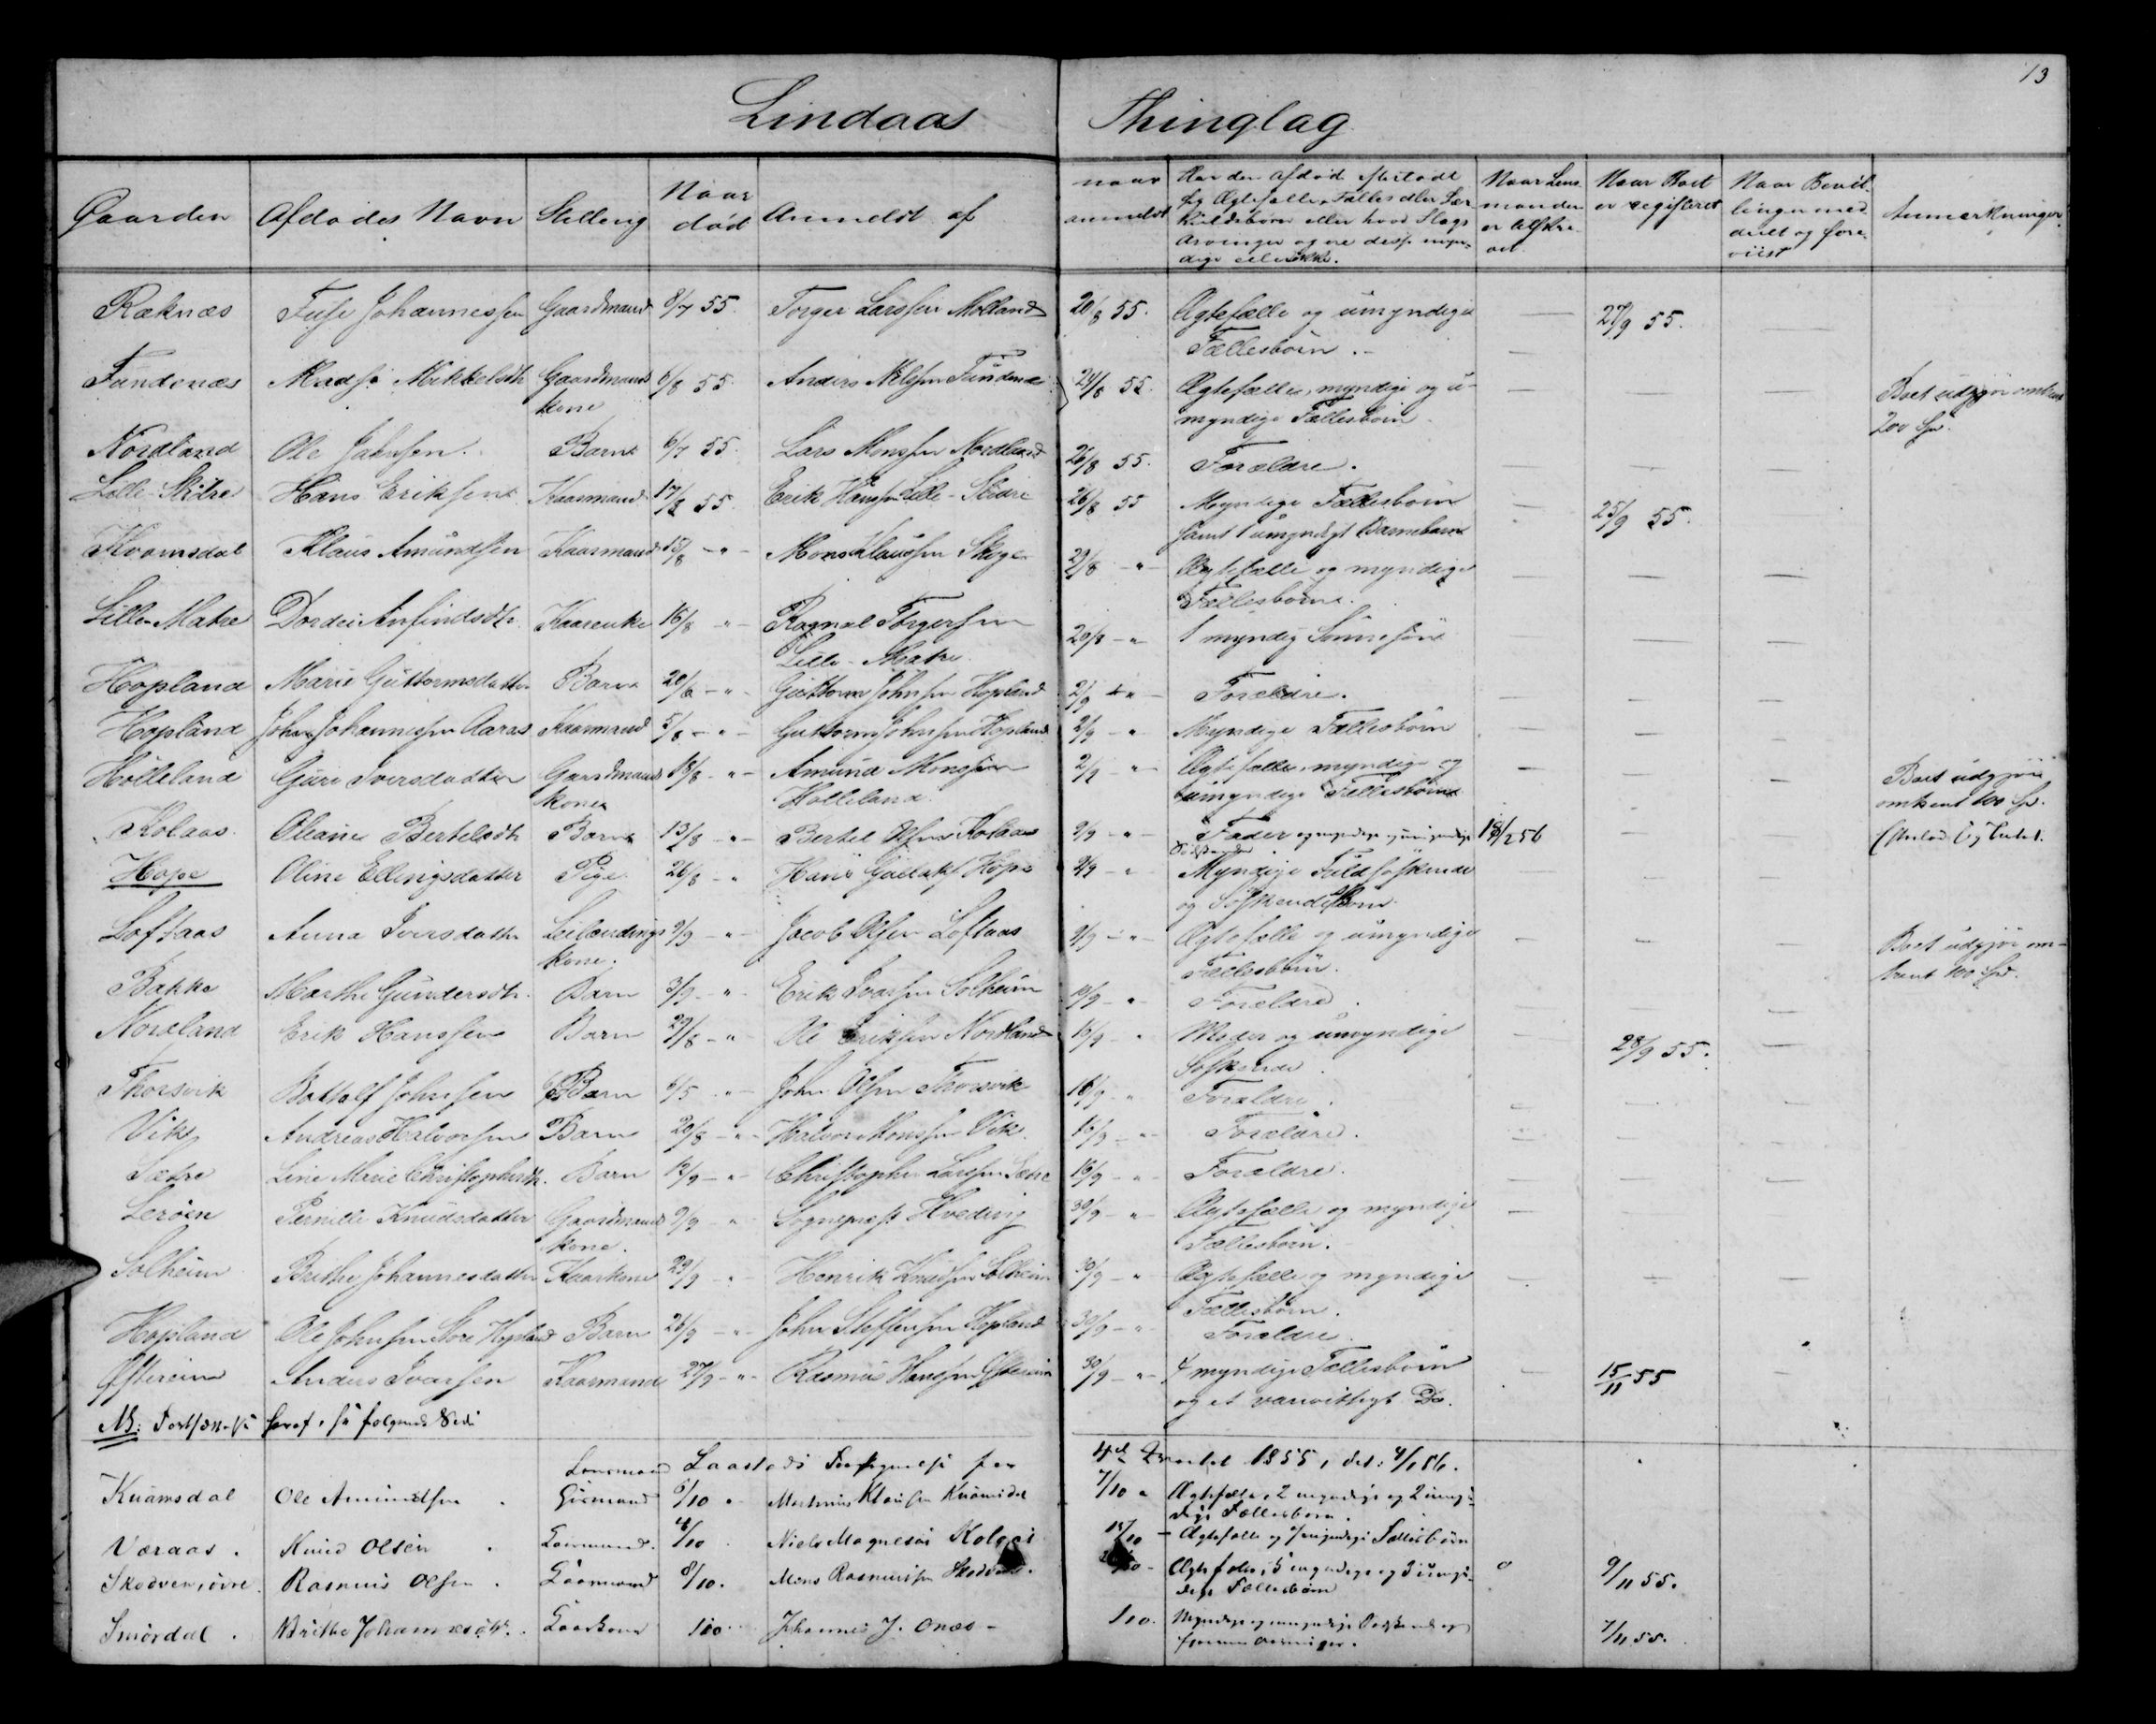 13
Lindaas Thinglag
Gaarden | Afdødes Navn | Stilling | Naar død | Anmeldt af | naar anmeldt | Har den afdøde efterladt sig Ægtefælle, Fælles eller Særkuldsbørn eller hvad Slags Arvinger og ere disse myndige eller ikke. | Naar Lensmanden er tilskrevet | Naar Boet er registreret | Naar Bevillingen meddeelt og foreviist | Anmærkninger
Ræknæs | Johannessen | Gaardmand | 8/7 55. | Torger Larssen Molland | 20/8 55. | Ægtefælle og umyndige Fællesbørn. | — | 27/9 55. | —
Fundenæs | Madsi Mikkelsdtr | Gaardmands kone | 6/8 55. | Anders Nilssen Fundenæs | 24/8 55. | Ægtefælle, myndige og umyndige Fællesbørn. | — | — | — | Boet udgjør omtrent 200 Spd.
Nordland | Ole | Barn | 6/7 55. | Lars Monssen Nordland | 26/8 55. | Forældre. | — | — | —
Lille-Skibre | Hans Eriksen | Kaarmand | 17/8 55. | Erik Hanssen Lille- | 26/8 55 | Myndige Fællesbørn samt 1 umyndigt Barnebarn | — | 25/9 55.
Kvamsdal | Klaus Amundsen | Kaarmand | 15/8 - " - | Mons Klaussen Skoge | 29/8 - " - | Ægtefælle og myndige Fællesbørn. | — | — | —
Lille-Matre | Dordei Anfindsdtr. | Kaarenke | 16/8 - " - | Ragnal Torgersen Lille-Matre | 20/8 - " | 1 myndig Sønnesøn | — | — | —
Hopland | Marie Guttormsdatter | Barn | 20/8 - " - | Guttorm Johnsen Hopland | 2/9 - " - | Forældre. | — | — | —
Hopland | John Johannessen Aaraas | Kaarmand | 5/8 - " - | Guttorm Johnsen Hopland | 2/9 - " | Myndige Fællesbørn | — | — | —
Hölleland | Guri Iversdatter | Gaardmands kone | 18/8 - " - | Amund Monssen Hölleland | 2/9 - " | Ægtefælle, myndige og umyndige Fællesbørn | — | — | — | Boet udgjør omtrent 100 Spd.
Kolaas | Oleane Bertelsdtr | Barn | 13/8 - " - | Bertel Olsen Kolaas | 9/9 - " - | Fader og myndige og umyndige Sødskende | — | —
Hope | Oline Ellingsdatter | Pige | 26/8 - " | Hans Hope | 9/9 - " | Myndige Fuldsøskende og Søskendebørn | — | — | —
Loftaas | Anna Iversdatter | Leilændings kone. | 9/9 - " - | Jacob Olsen Loftaas | 9/9 - " - | Ægtefælle og umyndige Fællesbørn. | — | — | — | Boet udgjør omtrent 100 Spd.
Bakke | Marthe Gundersdtr. | Barn | 3/9 - " | Erik Ivarsen Solheim | 10/9 - " | Forældre. | — | — | —
Nordland | Erik Hanssen | Barn | 29/8 - " | Ole Eriksen Nordland | 16/9 - " | Moder og umyndige Søskende. | — | 28/9 55. | —
Thorsvik | Bottolf Johnsen | Barn | 6/5 - " - | John Olsen Thorsvik | 16/9 - " | Forældre. | — | — | —
Vik | Andreas Halvorsen | Barn | 20/8 - " - | Halvor Monssen Vik | 16/9 - " - | Forældre. | — | — | —
Sætre | Line Marie Christophersdtr. | Barn | 12/9 - " - | Christopher Larssen Sætre | 16/9 - " - | Forældre. | — | — | —
Lerøen | Pernille Knudsdatter | Gaardmands kone. | 9/9 - " | Sognepræst Hveding | 30/9 - " | Ægtefælle og myndige Fællesbørn. | — | — | —
Solheim | Brithe Johannesdatter | Kaarkone | 23/9 - " | Henrik Knudsen Solheim | 30/9 - " | Ægtefælle og myndige Fællesbørn. | — | — | —
Hopland | Ole Johnsen Store Hopland | Barn | 26/9 - " - | John Steffensen Hopland | 30/9 - " | Forældre.
Anders Ivarsen | Kaarmand | 27/9 - " - | Rasmus Hanssen | 30/9 - " - | 4 myndige Fællesbørn og et vanvittigt Do. | — | 15/11 55
NB: følgende Side
Lensmand Laastads Fortegnelse for 4de Qvartal 1855, dat: 4/1 56.
Kuamsdal | Ole Amundsen | 6/10 | Klausen Kuamsdal | 7/10 " | Ægtefælle, 2 myndige og 2 umyndige Fællesbørn.
Væraas. | Knud Olsen | 4/10 | Niels Magnesen | Ægtefælle og Fællesbørn
Skodven, övre. | Rasmus Olsen | 8/10. | Mons Rasmusen Skodven. | Ægtefælle, 5 myndige og 3 umyndige Fællesbørn | 9/11 55.
Smördal. | Brithe Johannesdtr. | Kaarkone | Johannes J. Onæs | Myndige og umyndige | 7/11 55.